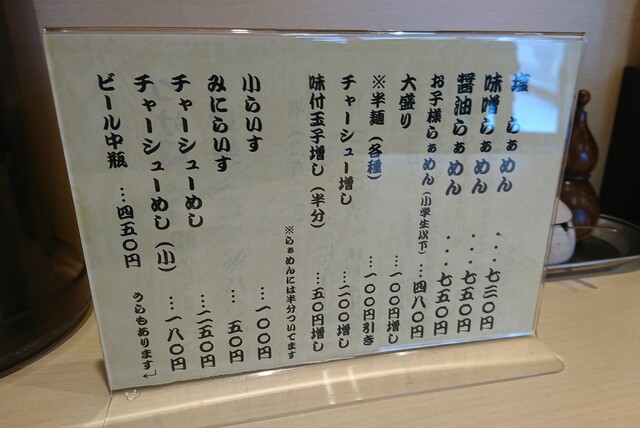 塩 らぁめん ・・・七三〇円
味噌らぁめん ・・・七五〇円
醤油らぁめん ・・・七五〇円
お子様らぁめん（小学生以下）…四八〇円
大盛り …一〇〇円増し
※半麺（各種） …一〇〇円引き
チャーシュー増し …二〇〇増し
味付玉子増し（半分） …五〇円増し
※らぁめんには半分ついてます
小らいす …一〇〇円
みにらいす … 五〇円
チャーシューめし …二五〇円
チャーシューめし（小） …一八〇円
ビール中瓶 …四五〇円
うらもあります↵